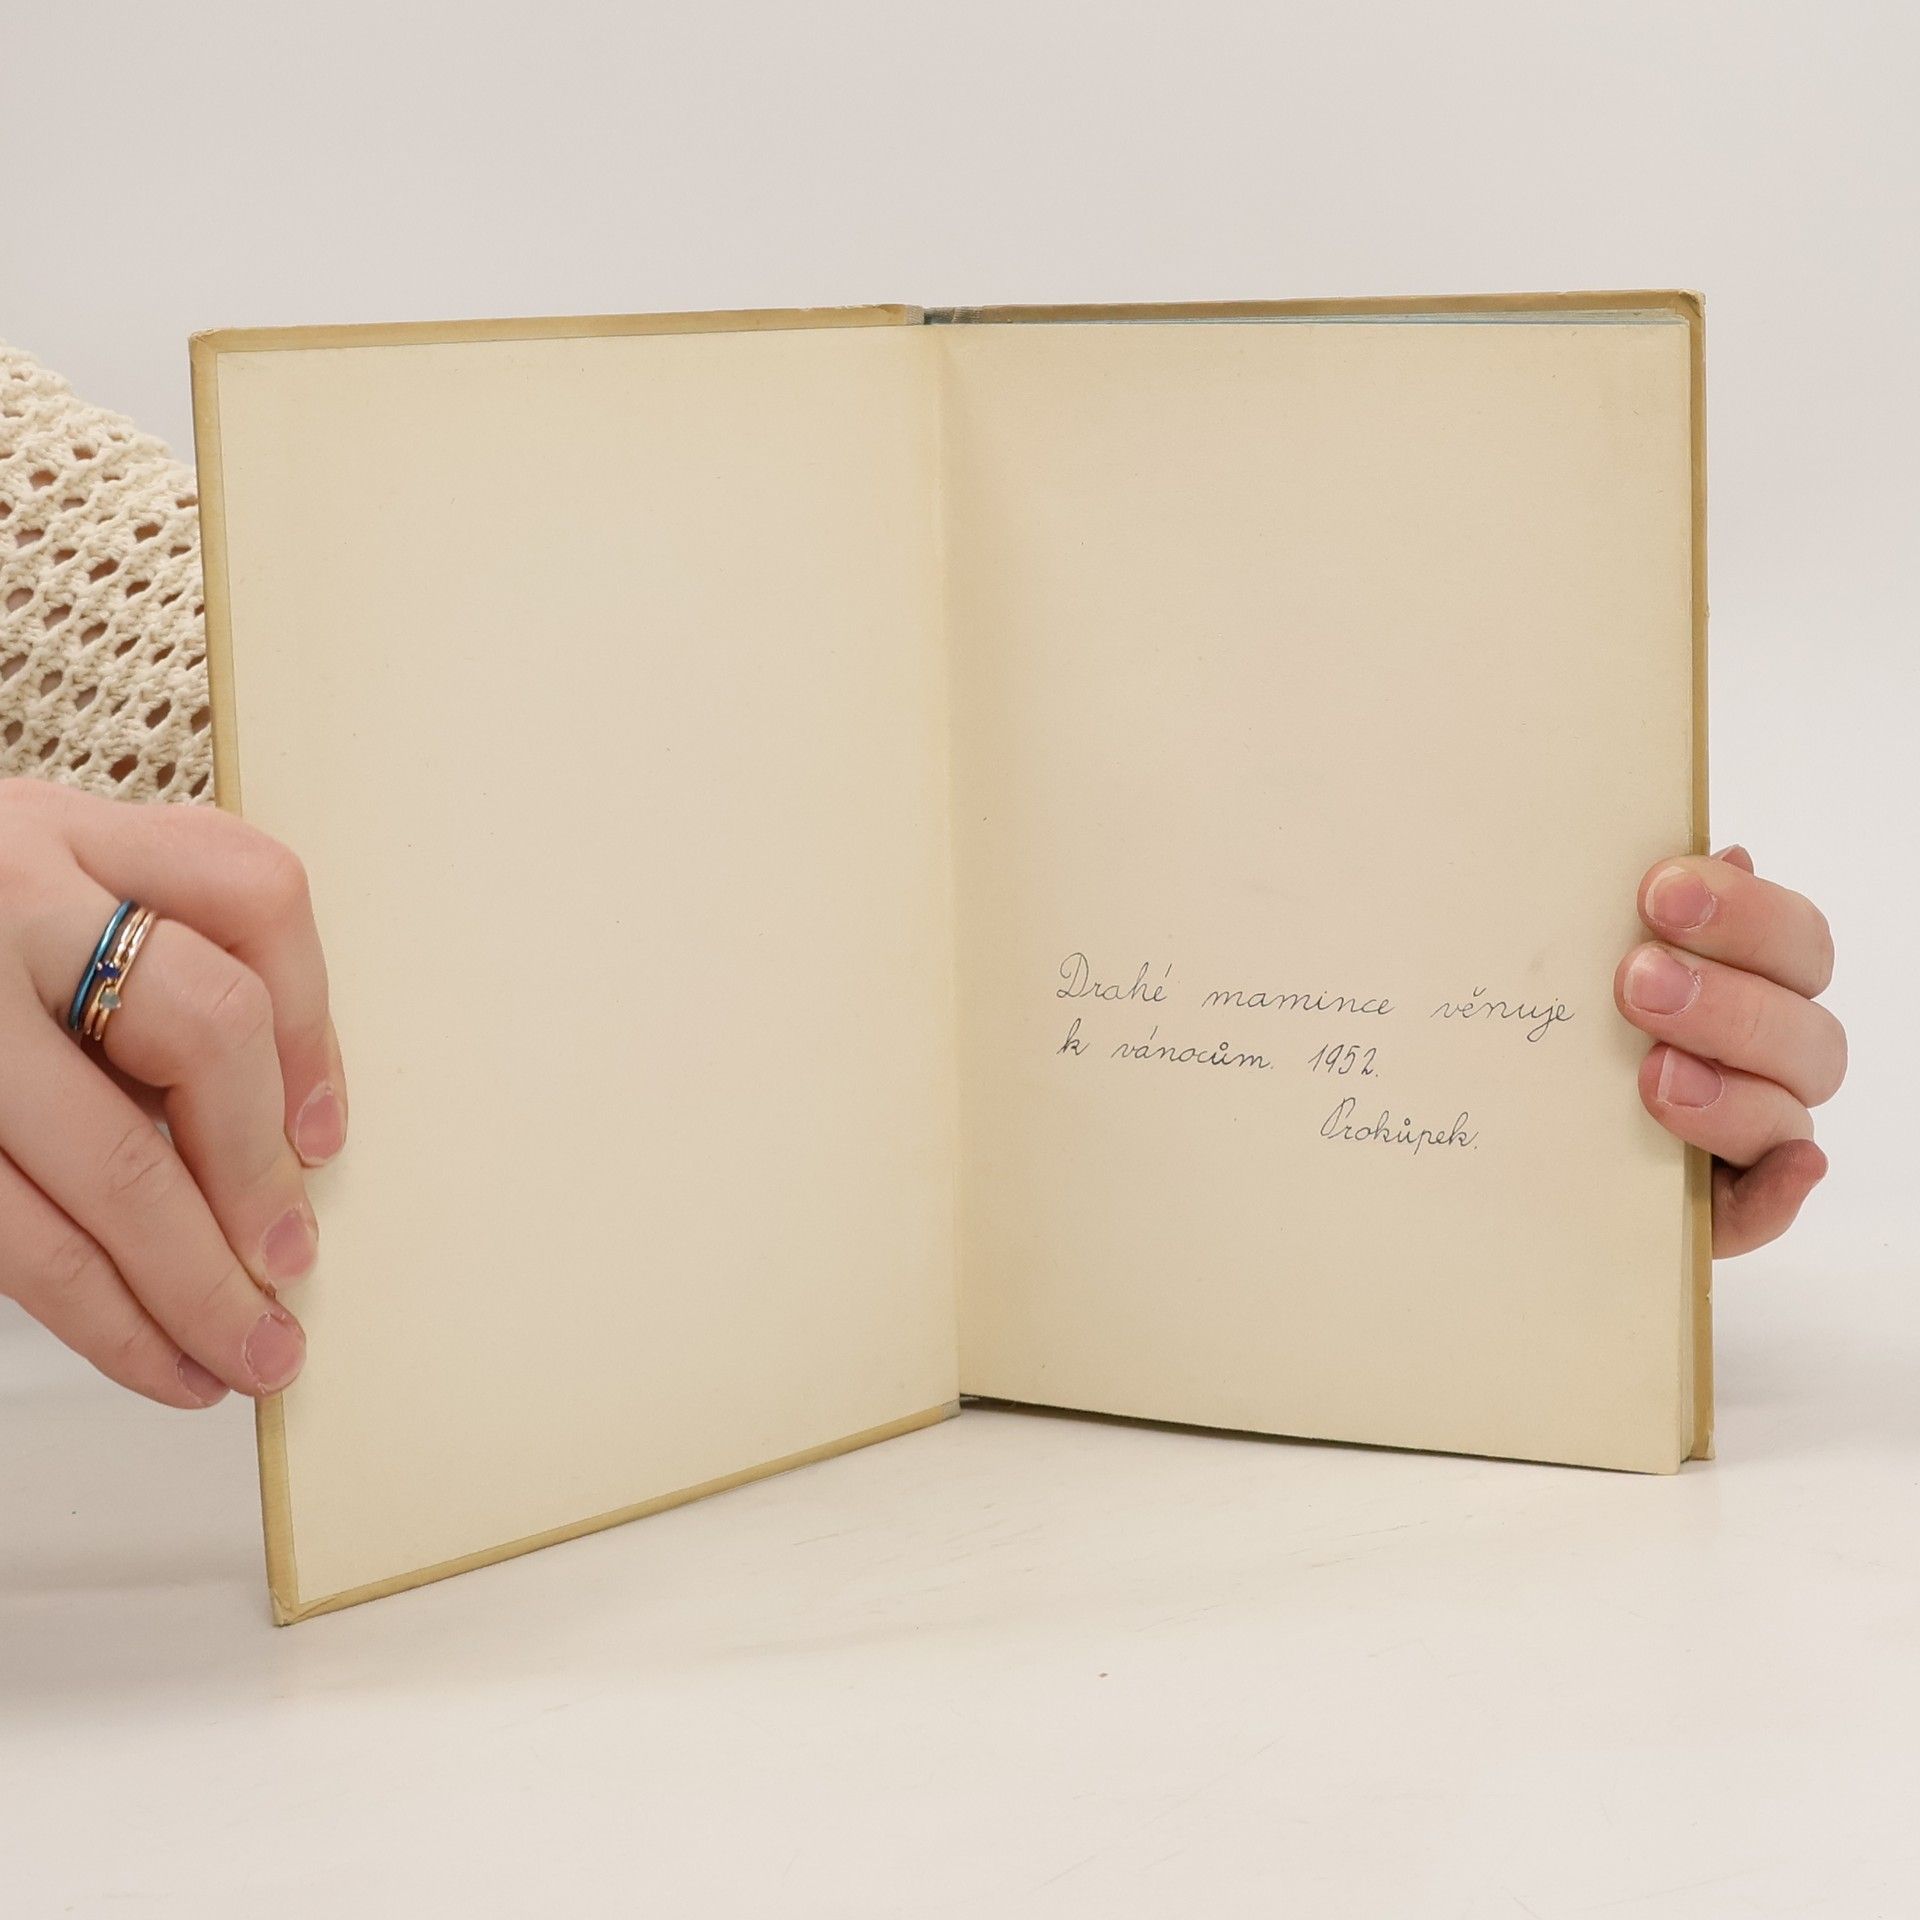 Drahé mamince věnuje
k vánocům. 1952.
Prokůpek.